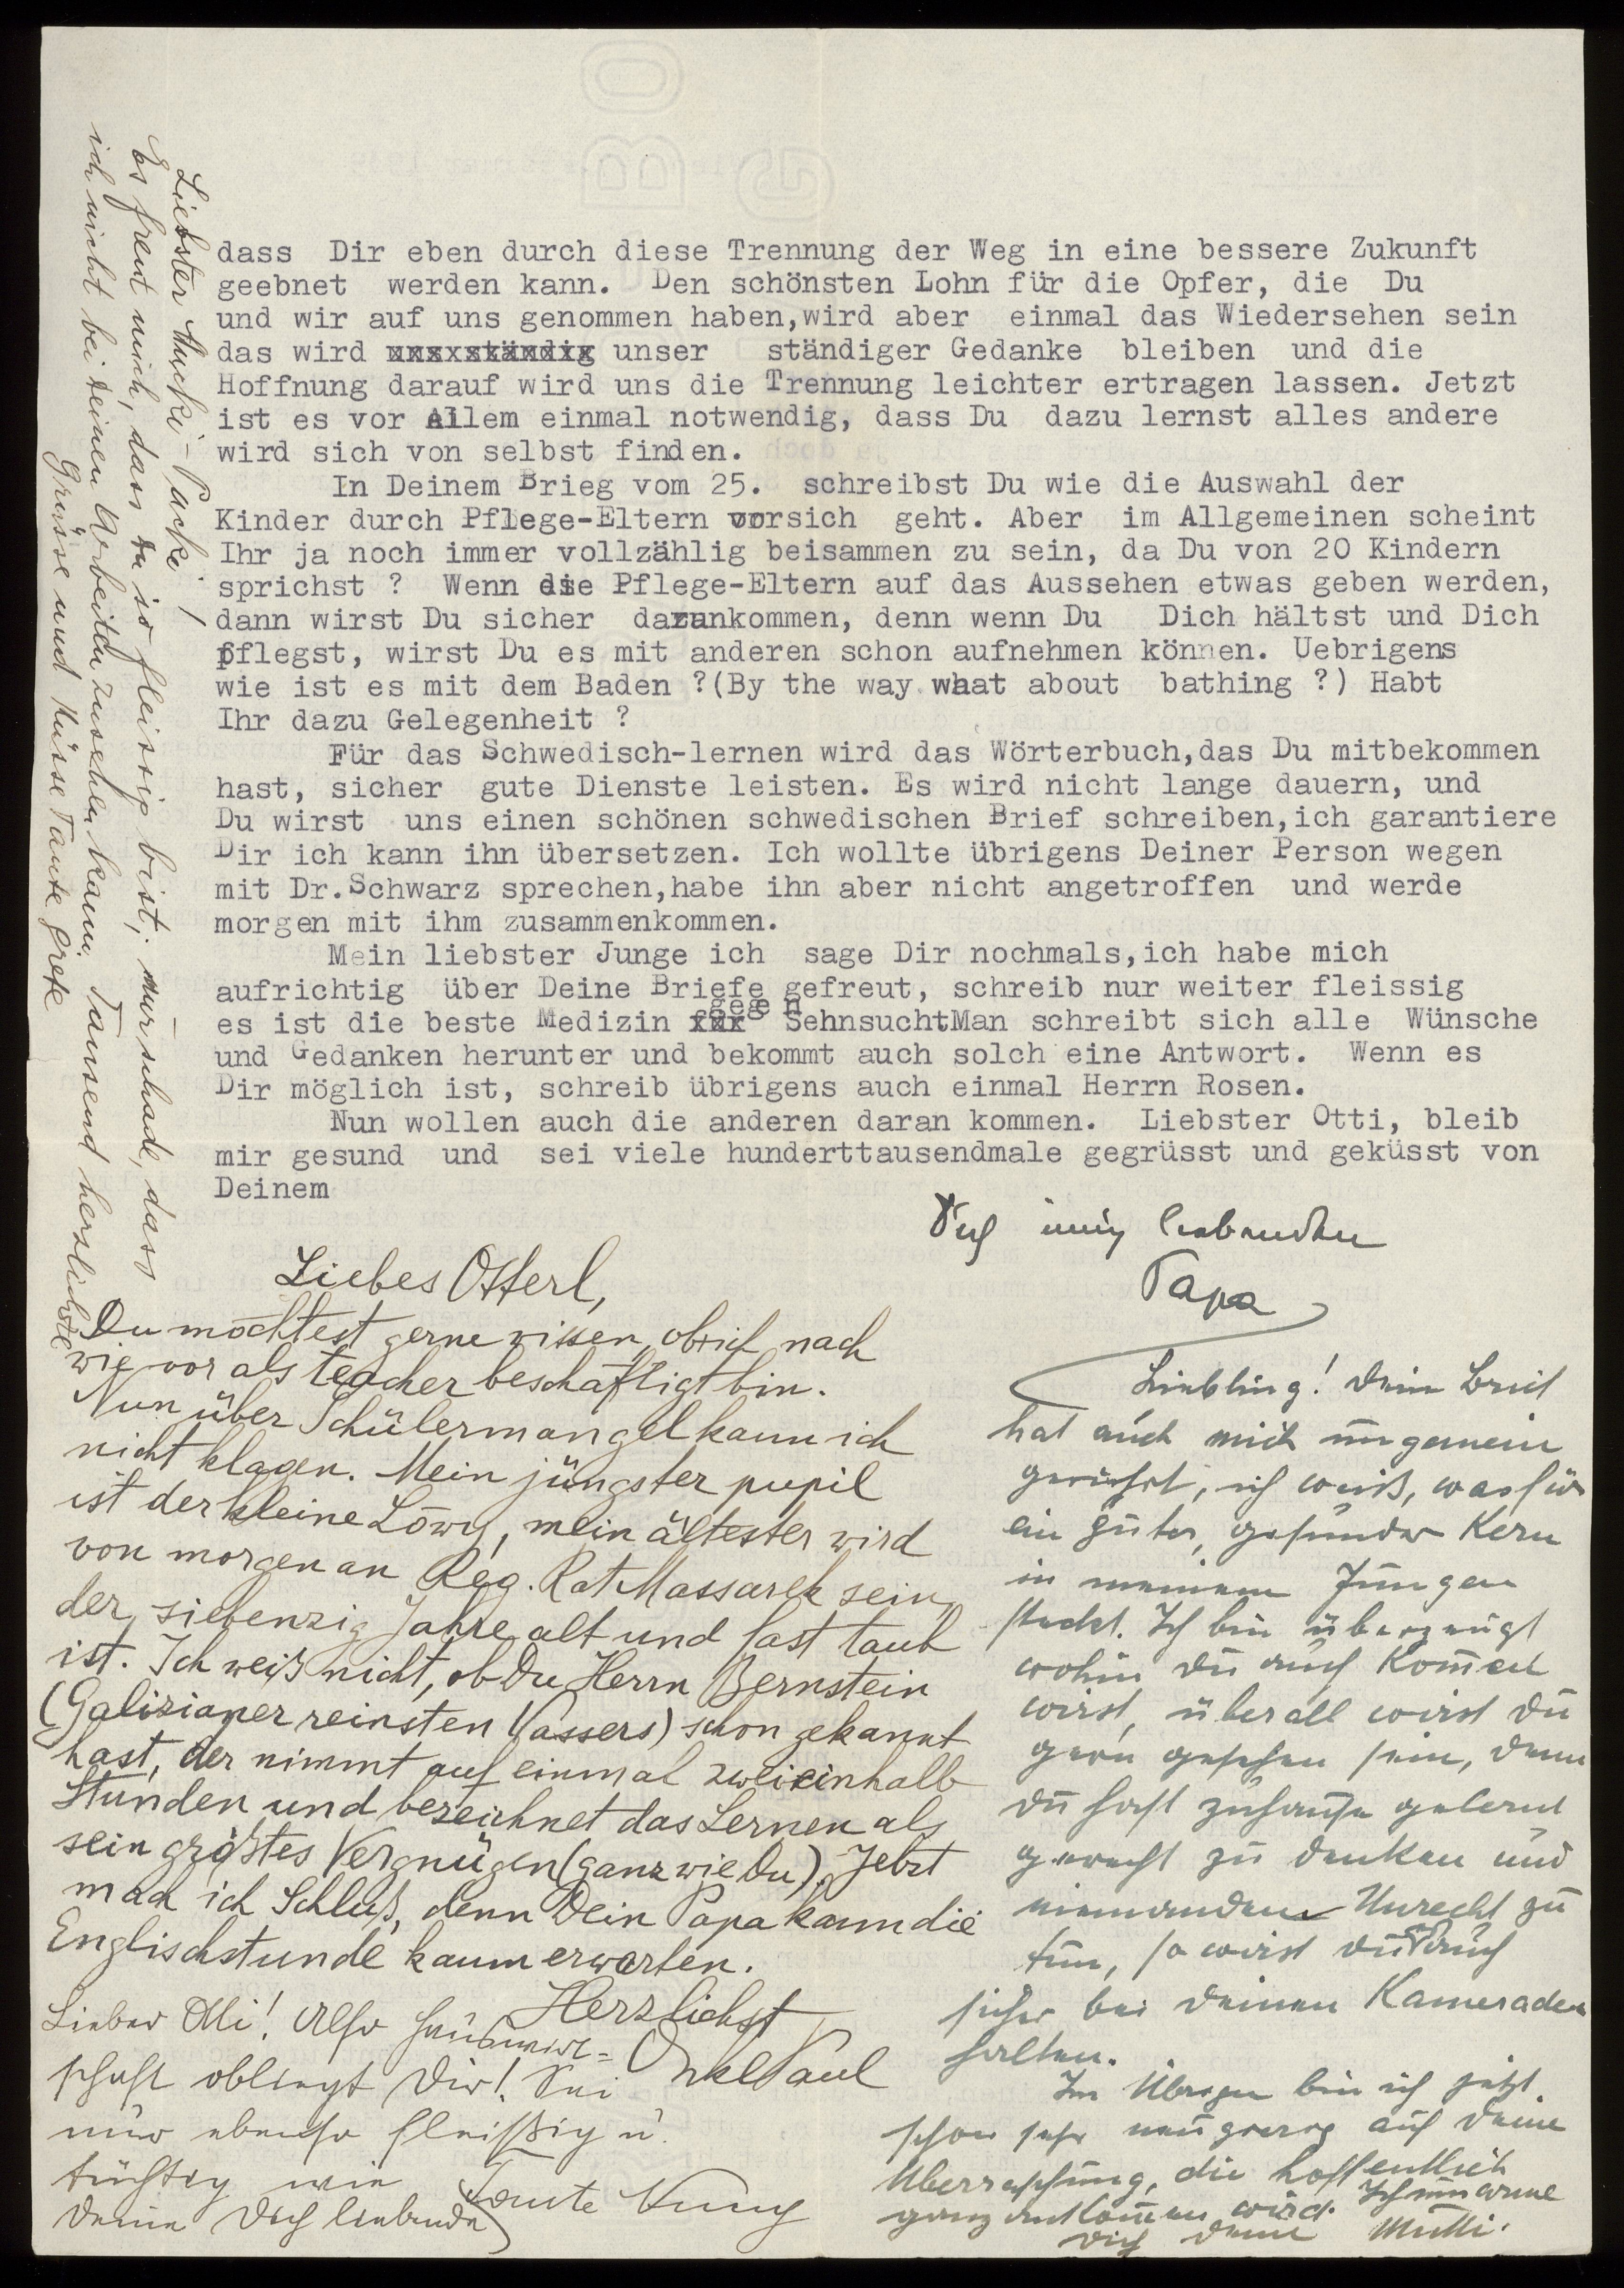 dass Dir eben durch diese Trennung der Weg in eine bessere Zukunft
geebnet werden kann. Den schönsten Lohn für die Opfer, die Du
und wir auf uns genommen haben,wird aber einmal das Wiedersehen sein
das wird unser ständiger Gedanke bleiben und die
Hoffnung darauf wird uns die Trennung leichter ertragen lassen. Jetzt
ist es vor Allem einmal notwendig, dass Du dazu lernst alles andere
wird sich von selbst finden.
In Deinem Brieg vom 25. schreibst Du wie die Auswahl der
Kinder durch Pflege-Eltern vorsich geht. Aber im Allgemeinen scheint
Ihr ja noch immer vollzählig beisammen zu sein, da Du von 20 Kindern
sprichst ? Wenn die Pflege-Eltern auf das Aussehen etwas geben werden,
dann wirst Du sicher darankommen, denn wenn Du Dich hältst und Dich
pflegst, wirst Du es mit anderen schon aufnehmen können. Uebrigens
wie ist es mit dem Baden ?(By the way what about bathing ?) Habt
Ihr dazu Gelegenheit ?
Für das Schwedisch-lernen wird das Wörterbuch,das Du mitbekommen
hast, sicher gute Dienste leisten. Es wird nicht lange dauern, und
Du wirst uns einen schönen schwedischen Brief schreiben,ich garantiere
Dir ich kann ihn übersetzen. Ich wollte übrigens Deiner Person wegen
mit Dr.Schwarz sprechen,habe ihn aber nicht angetroffen und werde
morgen mit ihm zusammenkommen.
Mein liebster Junge ich sage Dir nochmals,ich habe mich
aufrichtig über Deine Briefe gefreut, schreib nur weiter fleissig
es ist die beste Medizin gegen SehnsuchtMan schreibt sich alle Wünsche
und Gedanken herunter und bekommt auch solch eine Antwort. Wenn es
Dir möglich ist, schreib übrigens auch einmal Herrn Rosen.
Nun wollen auch die anderen daran kommen. Liebster Otti, bleib
mir gesund und sei viele hunderttausendmale gegrüsst und geküsst von
Deinem
Dich innig liebenden
Papa
Liebes Otterl,
Du möchtest gerne wissen, ob ich nach
wie vor als teacher beschäftigt bin.
Nun über Schülermangel kann ich
nicht klagen. Mein jüngster pupil
ist der kleine Löwy, mein ältester wird
von morgen an Reg. Rat Massarek sein,
der siebenzig Jahre alt und fast taub
ist. Ich weiß nicht, ob Du Herrn Bernstein
(Galizianer reinsten Wassers) schon gekannt
hast, der nimmt auf einmal zweieinhalb
Stunden und bezeichnet das Lernen als
sein größtes Vergnügen (ganz wie Du). Jetzt
mach ich Schluß, denn Dein Papa kann die
Englischstunde kaum erwarten.
Herzlichst
Onkel Paul
Liebling! Dein Brief
hat auch mich ungemein
gerührt, ich weiß, was für
ein guter, gesunder Kern
in meinem Jungen
steckt. Ich bin überzeugt
wohin du auch kommen
wirst, überall wirst du
gern gesehen sein, denn
du hast zuhause gelernt
gerecht zu denken und
niemandem Unrecht zu
tun, so wirst du es auch
sicher bei deinen Kameraden
halten.
Im Übrigen bin ich jetzt
schon sehr neugierig auf deine
Überraschung, die hoffentlich
ganz ankommen wird. Ich umarme
dich deine Mutti.
Lieber Otti! Also Hauswirt-
schaft obliegt Dir! Sei
nur ebenso fleißig u.
tüchtig wie
Deine Dich liebende
Tante
Liebster Mucki-Packi!
Es freut mich, dass du so fleissig bist; nur schade, dass
ich nicht bei deinen Arbeiten zusehen kann. Tausend herzlichste
Grüsse und Küsse Tante Grete